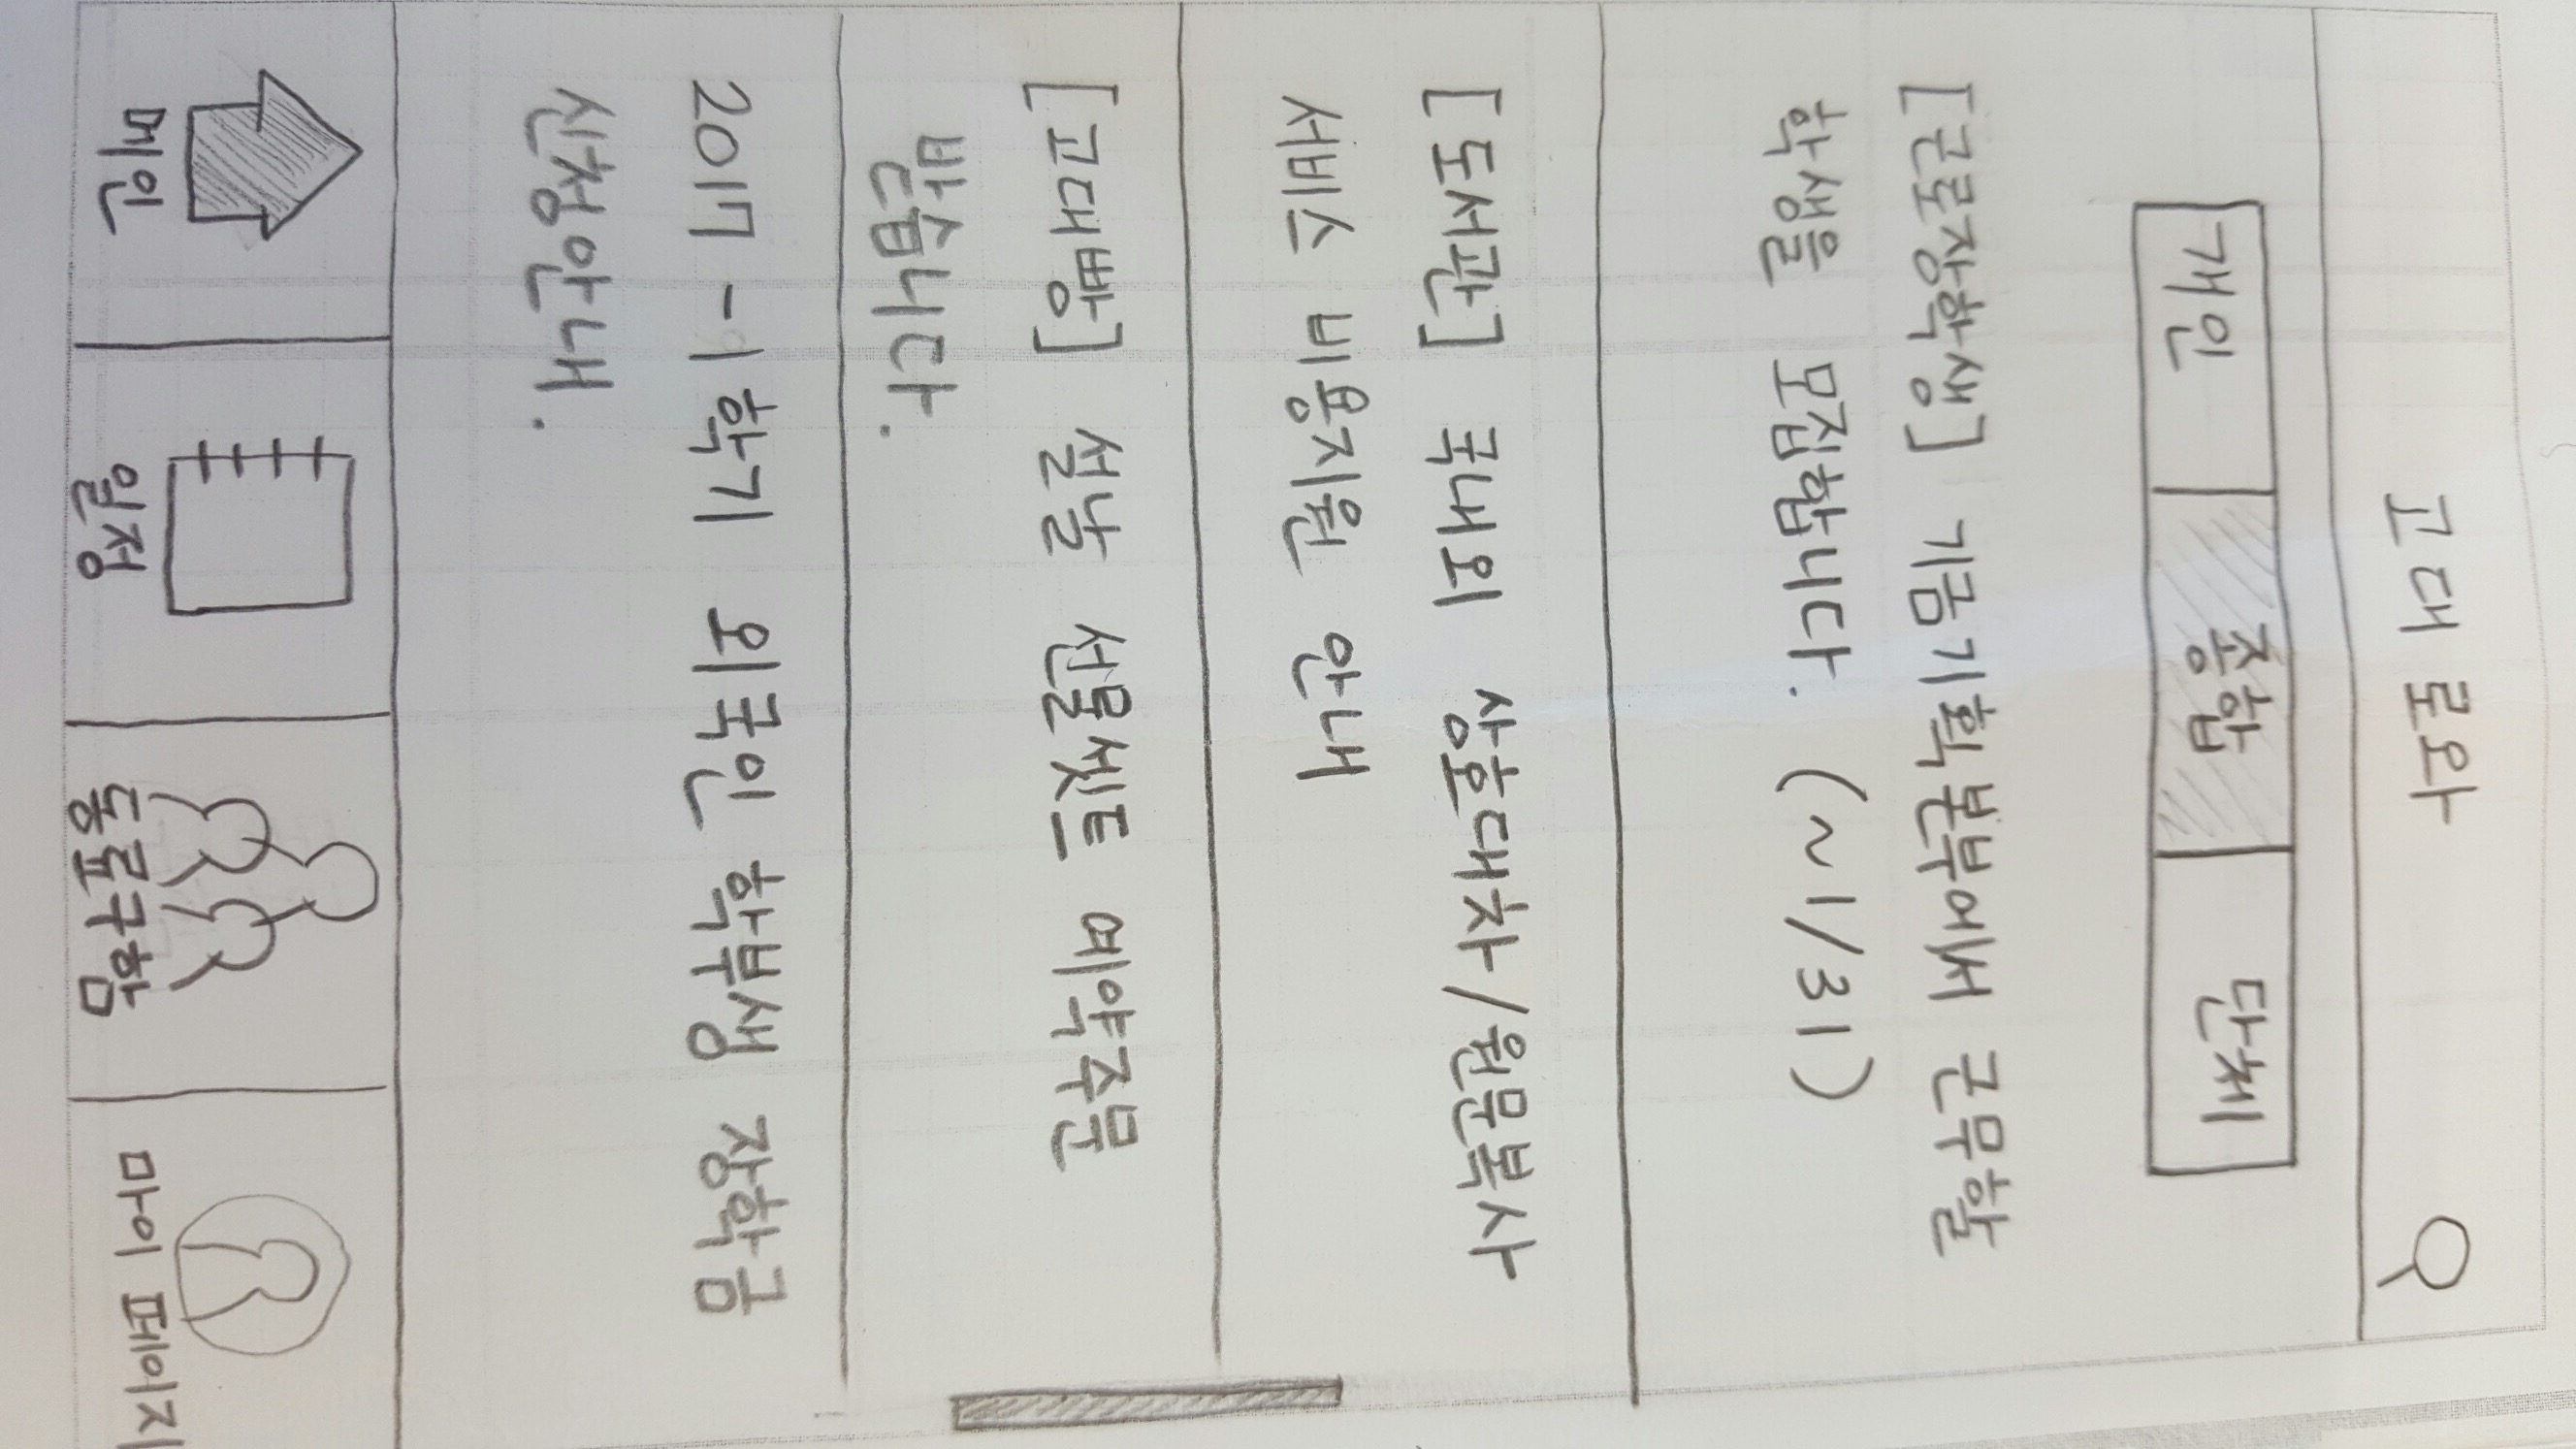 고대로와
개인 종합 단체
[근로장학생] 기금기획본부에서 근무할
학생을 모집합니다. (~1/31)
[도서관] 국내외 상호대차/원문복사
서비스 비용지원 안내
[고대빵] 설날 선물셋트 예약주문
받습니다.
2017-1학기 외국인 학부생 장학금
신청안내.
메인 일정 동포구함 마이페이지